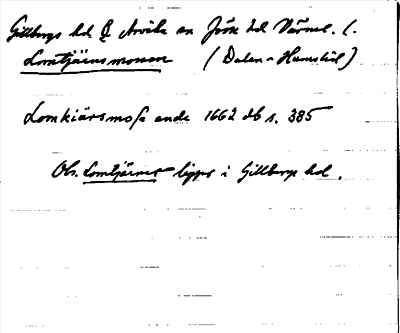 Gillbergs hd Q Arvika sn Jösse hd Värml. l.
Lomtjärnsmonen (Dalen - Humstöl)
Lomkiärsmosse ende 1662 db s. 385
Obs. Lomtjärnet ligger i Gillbergs hd.